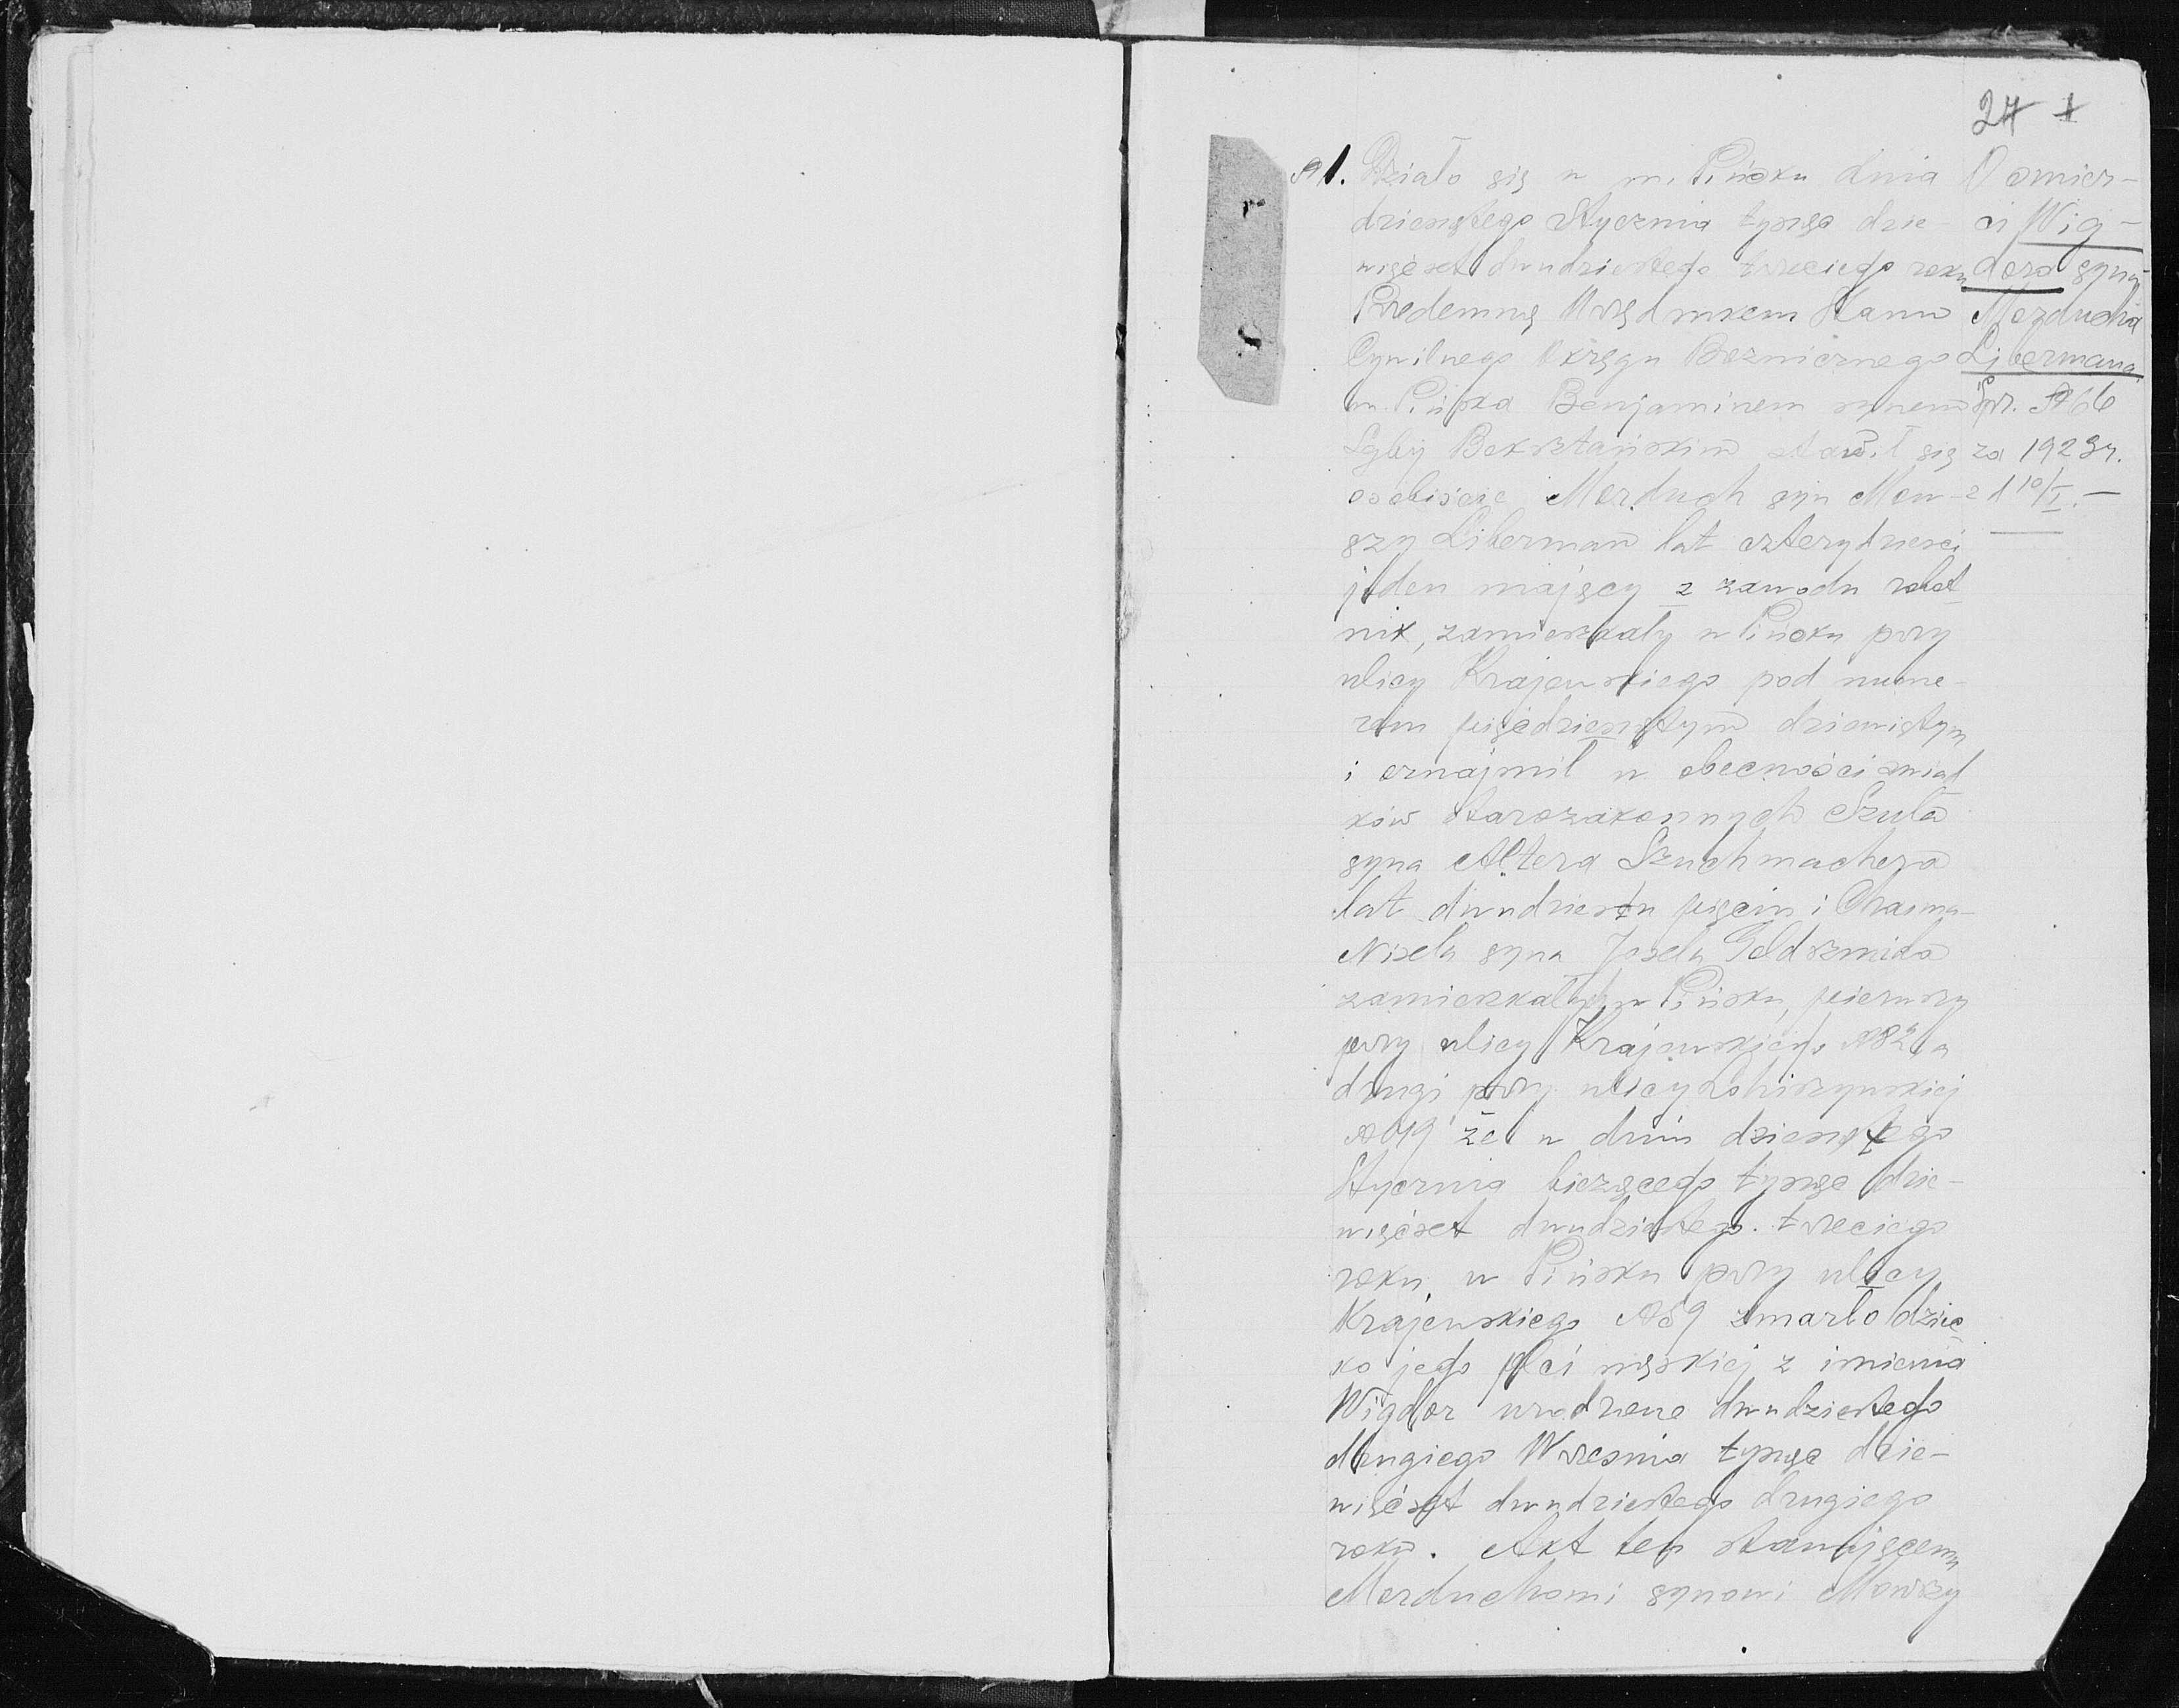 27 1
№ 1. Działo się w m. Pińsku dnia
dziesiątego Stycznia tysiąc dzie-
więćset dwudziestego trzeciego roku
Przedemną Urzędnikem Stanu
Cywilnego Okręgu Bóżnicznego
m. Pińska Benjaminem synem
stawił się
osobiście Morduch syn Mow-
szy Liberman lat czterydzieści
jeden mający z zawodu robot-
nik, zamieszkały w Pińsku przy
ulicy Krajewskiego pod nume-
rem pięćdziesiątym dziewiątym
i oznajmił w obecności świad
ków starozakonnych Szula
syna Altera Szuchmachera
lat dwudziestu pięciu i
Nisela syna Josela Goldszmida
zamieszkałych w Pińsku, pierwszy
przy ulicy Krajewskiego № 82 a
drugi przy ulicy Lohiszynskiej
№ 49 że w dniu dziesiątego
Stycznia bieżącego tysiąc dzie-
więćset dwudziestego trzeciego
roku w Pińsku przy ulicy
Krajewskiego № 59 zmarło dziec
ko jego płci męskiej z imienia
Wigdor urodzone dwudziestego
drugiego Wrzesnia tysiąc dzie-
więćset dwudziestego drugiego
roku. Akt ten stawającemu
Morduchowi synowi Mowszy
O śmier-
ci Wig-
dora syna
Morducha
Libermana.
Spr. № 66
za 1923 r.
z d 10/I. —